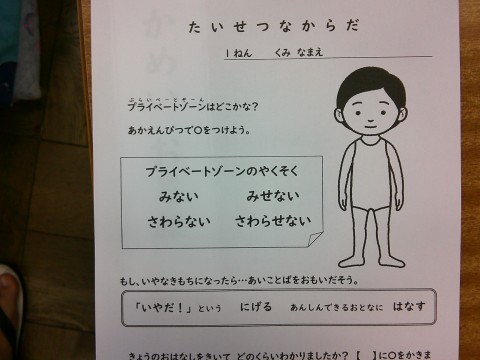 たいせつなからだ
1ねん くみ なまえ
ぷらいべーとぞーん
プライベートゾーンはどこかな?
あかえんぴつで○をつけよう。
プライベートゾーンのやくそく
みない みせない
さわらない さわらせない
もし、いやなきもちになったら…あいことばをおもいだそう。
「いやだ!」という にげる あんしんできるおとなに はなす
きょうのおはなしをきいて どのくらいわかりましたか?【 】に○をかきま